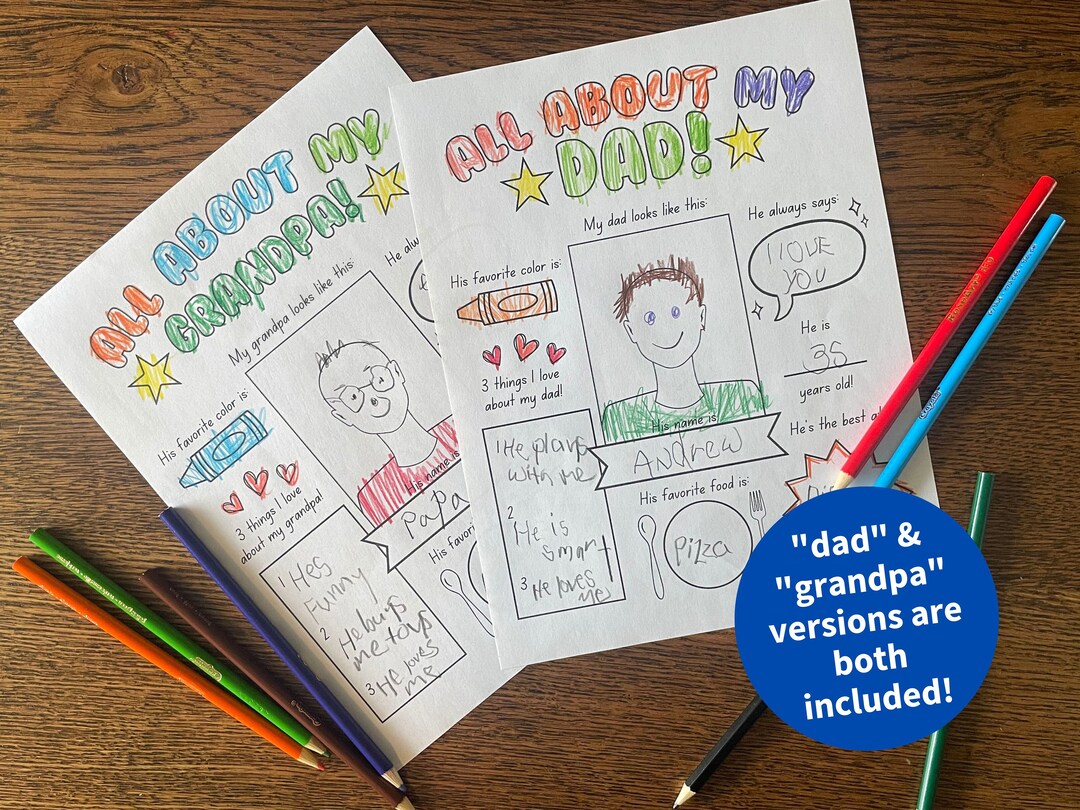 ALL ABOUT MY
GRANDPA!
My grandpa looks like this:
He alw
His favorite color is:
3 things I love
about my grandpa!
His name is
PaPa
His favori
1 Hes
Funny
2
He buys
me toys
3 He loves
me
ALL ABOUT MY
DAD!
My dad looks like this:
He always says:
I LOVE
YOU
His favorite color is:
He is
38
years old!
3 things I love
about my dad!
He's the best a
His name is
ANdrew
1 He plays
with me
2
He is
smart
3 He loves
me
His favorite food is:
Pizza
"dad" &
"grandpa"
versions are
both
included!